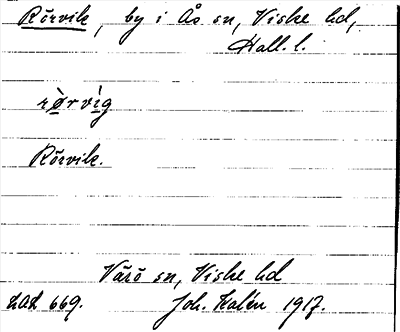 Rörvik, by i Ås sn, Viske hd,
Hall. l.
rø̀rvìg
Rörvik.
Värö sn, Viske hd
LAL 669. Joh. Kalén 1917.